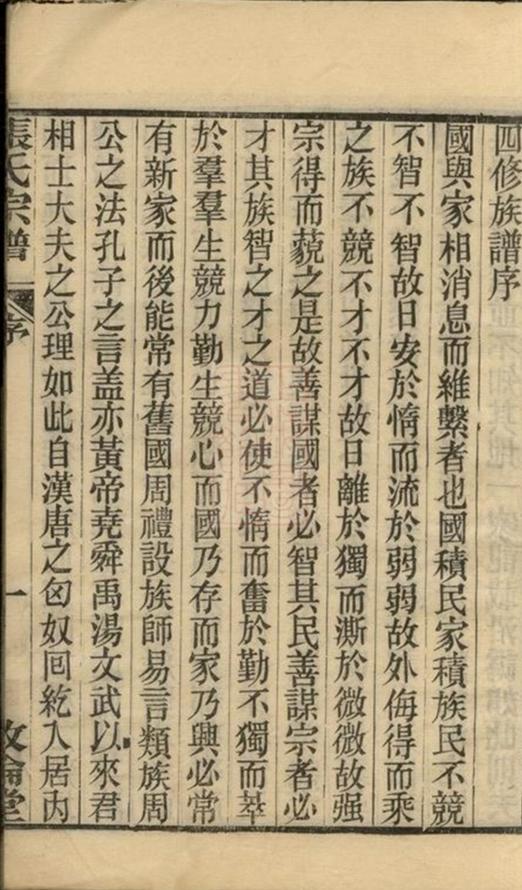 四修族譜序
國與家相消息而維繫者也國積民家積族民不競
不智不智故日安於惰而流於弱弱故外侮得而乘
之族不競不才不才故日離於獨而澌於微微故强
宗得而藐之是故善謀國者必智其民善謀宗者必
才其族智之才之道必使不惰而奮於勤不獨而萃
於羣羣生競力勤生競心而國乃存而家乃興必常
有新家而後能常有舊國周禮設族師易言類族周
公之法孔子之言盖亦黃帝堯舜禹湯文武以來君
相士大夫之公理如此自漢唐之匈奴回紇入居内
張氏宗譜 序 一 敦倫堂